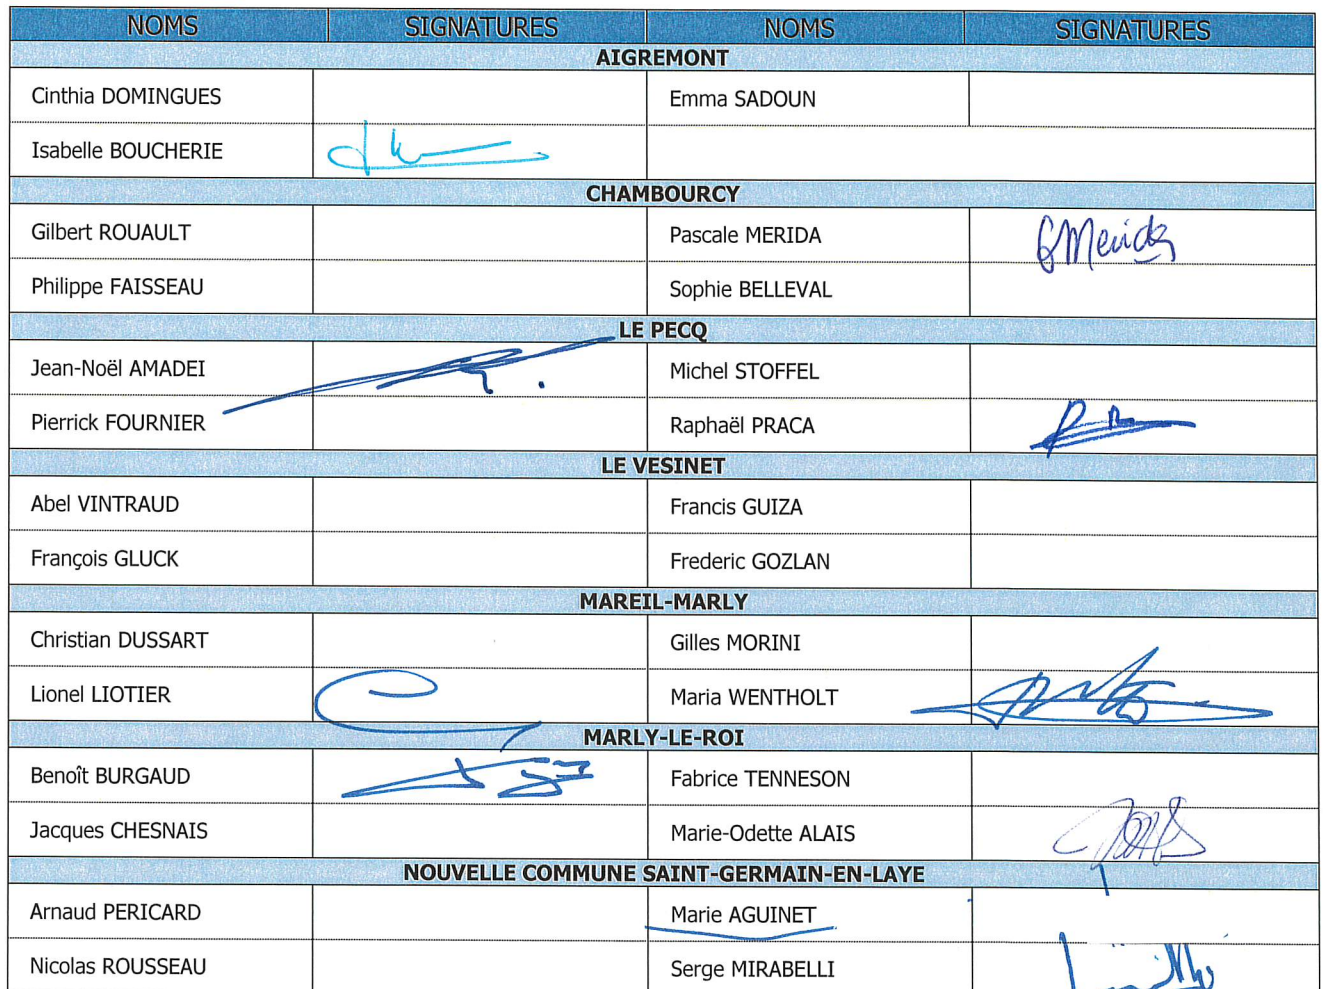 NOMS SIGNATURES NOMS SIGNATURES
AIGREMONT
Cinthia DOMINGUES Emma SADOUN
Isabelle BOUCHERIE
CHAMBOURCY
Gilbert ROUAULT Pascale MERIDA
Philippe FAISSEAU Sophie BELLEVAL
LE PECQ
Jean-Noël AMADEI Michel STOFFEL
Pierrick FOURNIER Raphaël PRACA
LE VESINET
Abel VINTRAUD Francis GUIZA
François GLUCK Frederic GOZLAN
MAREIL-MARLY
Christian DUSSART Gilles MORINI
Lionel LIOTIER Maria WENTHOLT
MARLY-LE-ROI
Benoît BURGAUD Fabrice TENNESON
Jacques CHESNAIS Marie-Odette ALAIS
NOUVELLE COMMUNE SAINT-GERMAIN-EN-LAYE
Arnaud PERICARD Marie AGUINET
Nicolas ROUSSEAU Serge MIRABELLI